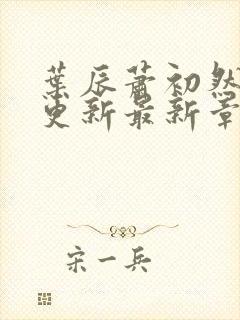 葉辰蕭初然
更新最新章
宋一兵